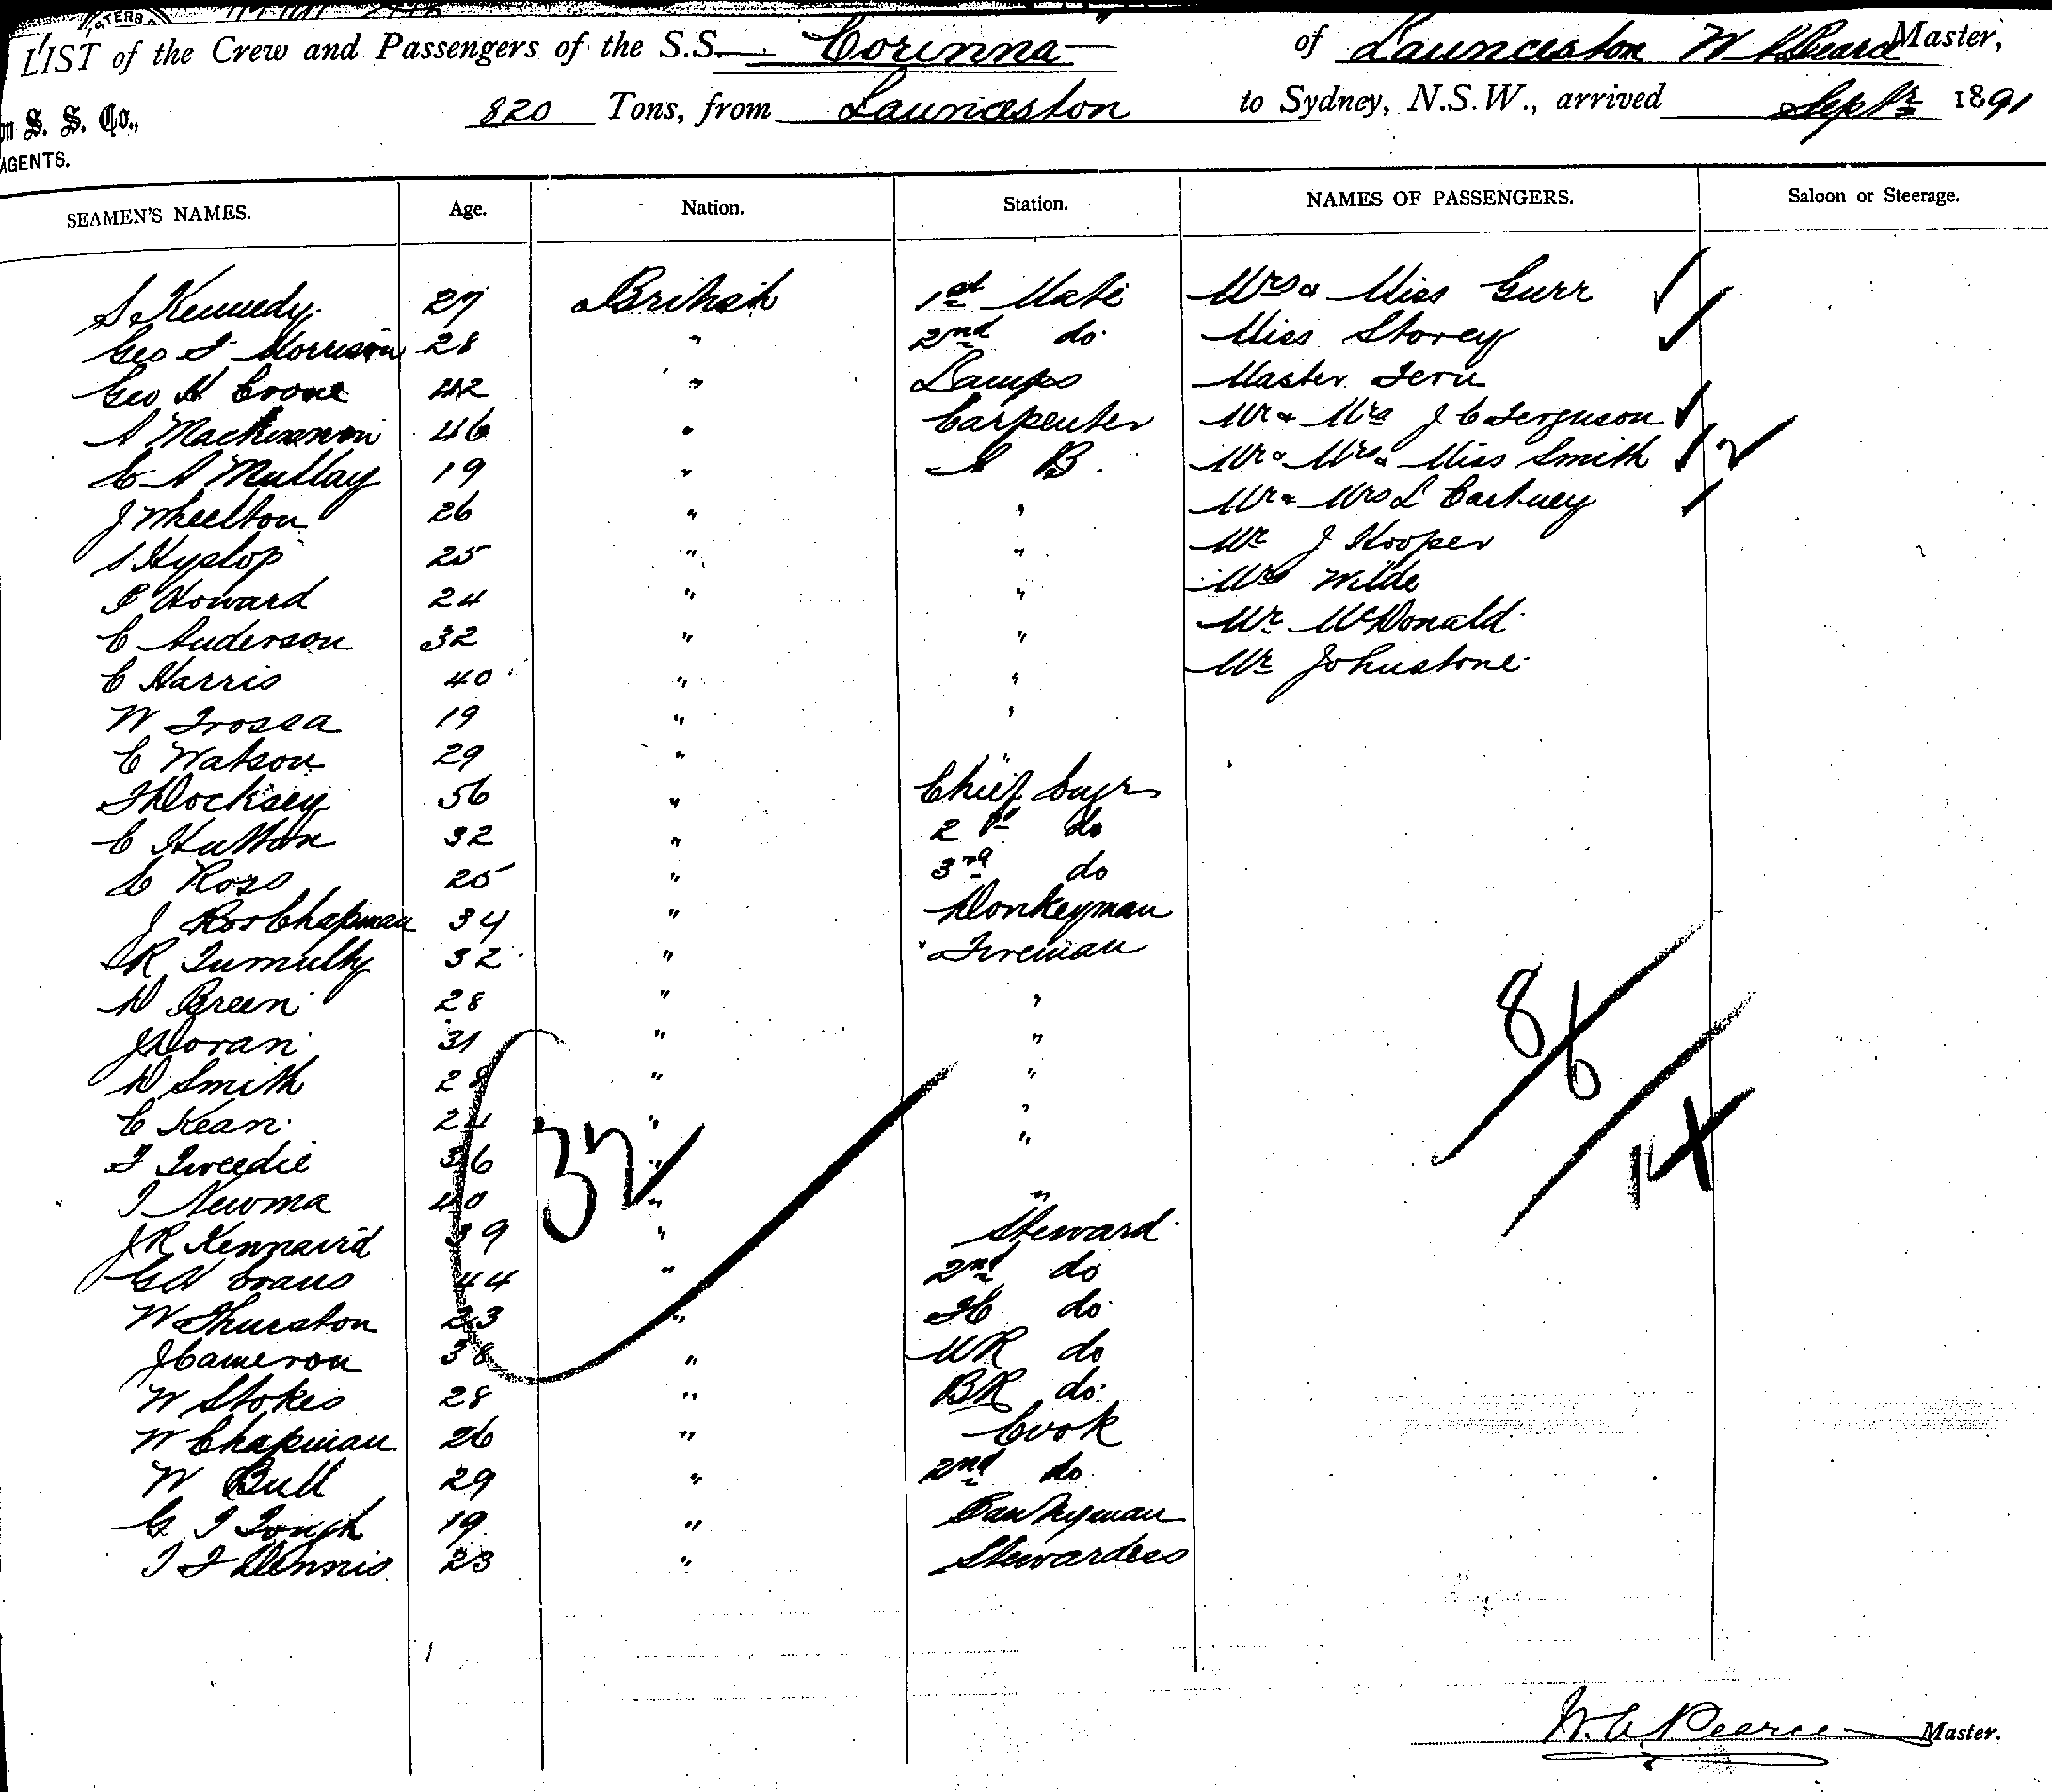 LIST of the Crew and Passengers of the S.S. Corinna of Launceston W Master,
820 Tons, from Launceston to Sydney, N.S.W., arrived Septr 1891
S. S. Co.,
AGENTS.
SEAMEN'S NAMES. Age. Nation. Station. NAMES OF PASSENGERS. Saloon or Steerage.
S Kennedy 27 British 1st Mate Mrs & Miss Gurr
Geo F Morrison 28 " 2nd do Miss Storey
Geo H Crone 42 " Lamps Master Fern
A Mackinnon 46 " Carpenter Mr & Mrs J C Ferguson
E A Mullay 19 " A B. Mr & Mrs & Miss Smith 2
J Wheelton 26 " " Mr & Mrs L Cartney
S Hyslop 25 " " Mr J Hooper
P Howard 24 " " Mrs Wilde
C Anderson 32 " " Mr McDonald
C Harris 40 " " Mr Johnstone
W Trossa 19 " "
C Watson 29 "
Docksey 56 " Chief Engr
C Hutton 32 " 2nd do
E Ross 25 " 3rd do
J Chapman 34 " Donkeyman
R Tumulty 32 " Fireman
D Breen 28 " "
J Doran 31 " "
D Smith 28 " "
C Kean 24 " "
F Tweedie 36 " "
T Newma 40 " "
J R Kennaird 39 " Steward
G H Evans 44 " 2nd do
W Thurston 23 " do
J Cameron 38 " MR do
W Stokes 28 " BR do
W Chapman 26 " Cook
W Bull 29 " 2nd do
G T Tough 19 " Pantryman
T F Dennis 23 " Stewardess
32
8/6/14
W. Pearce Master.